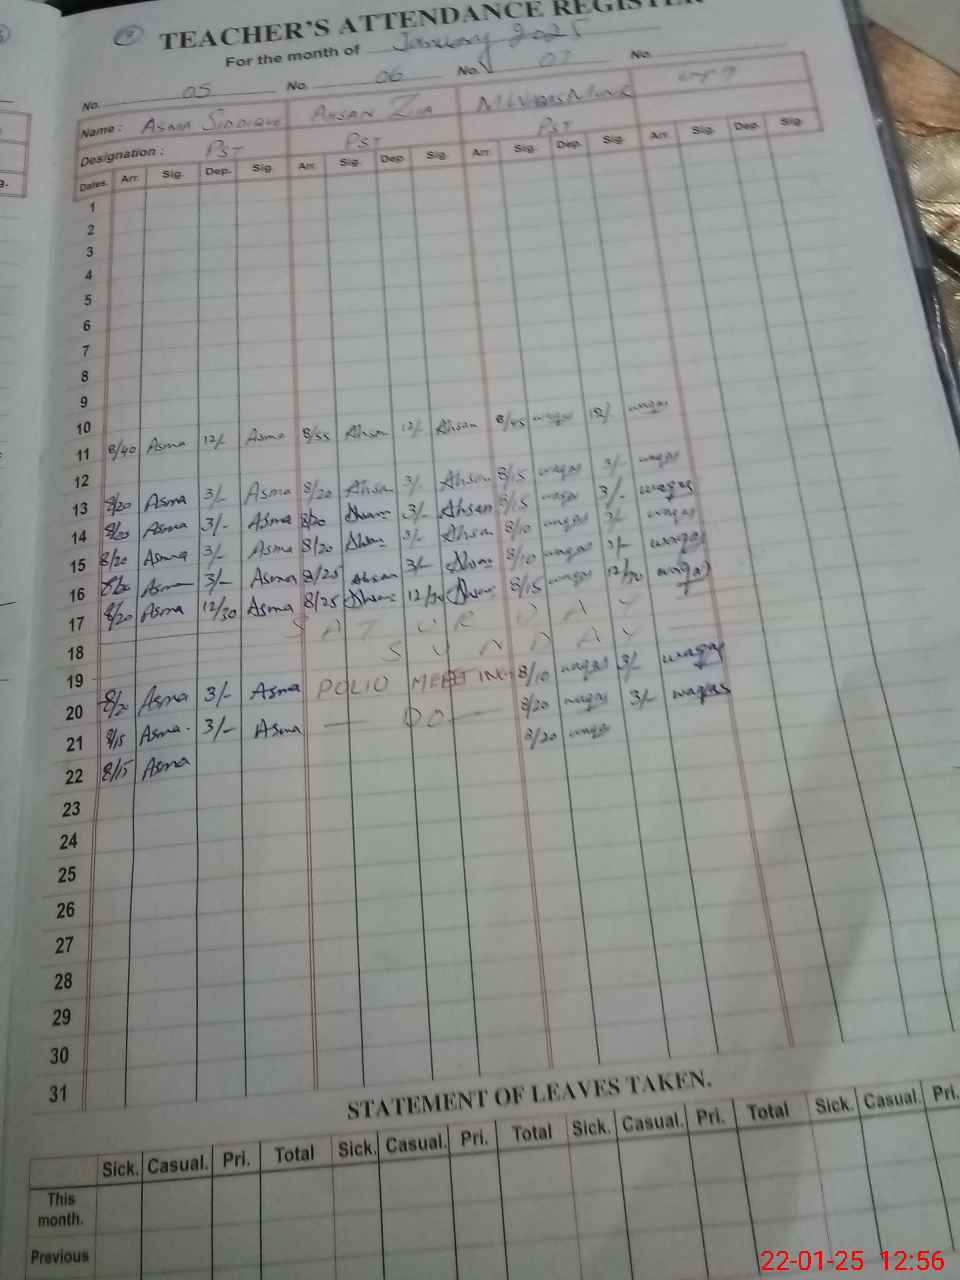 TEACHER'S ATTENDANCE REGISTER
For the month of January 2025
No. 05 No. 06 No. 07 No.
Name : ASMA SIDDIQUE AHSAN ZIA
Designation : PST PST PST
Dates. Arr. Sig. Dep. Sig. Arr. Sig. Dep. Sig. Arr. Sig. Dep. Sig. Arr. Sig. Dep. Sig.
1
2
3
4
5
6
7
8
9
10
11 8/40 Asma 12/- Asma 8/55 Ahsan 12/- Ahsan 8/45 waqas 12/- waqas
12
13 8/20 Asma 3/- Asma 8/20 Ahsan 3/- Ahsan 8/15 waqas 3/- waqas
14 8/20 Asma 3/- Asma 8/20 Ahsan 3/- Ahsan 8/15 waqas 3/- waqas
15 8/20 Asma 3/- Asma 8/20 Ahsan 3/- Ahsan 8/10 waqas 3/- waqas
16 8/20 Asma 3/- Asma 8/25 Ahsan 3/- Ahsan 8/10 waqas 3/- waqas
17 8/20 Asma 12/30 Asma 8/25 Ahsan 12/30 Ahsan 8/15 waqas 12/30 waqas
18 SATURDAY
19 SUNDAY
20 8/20 Asma 3/- Asma POLIO MEETING 8/10 waqas 3/- waqas
21 8/15 Asma 3/- Asma — DO — 8/20 waqas 3/- waqas
22 8/15 Asma 8/20 waqas
23
24
25
26
27
28
29
30
31
STATEMENT OF LEAVES TAKEN.
Sick. Casual. Pri. Total Sick. Casual. Pri. Total Sick. Casual. Pri. Total Sick. Casual. Pri.
This
month.
Previous
22-01-25 12:56